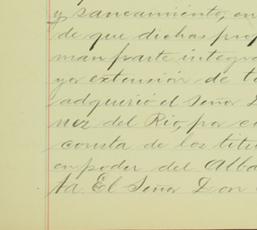 y saneamiento, en
de que dichas pro
man parte integra
yor extensión de t
adquirió el Señor D
nez del Rio, por c
consta de los titu
en poder del Alba
ta El Señor Don